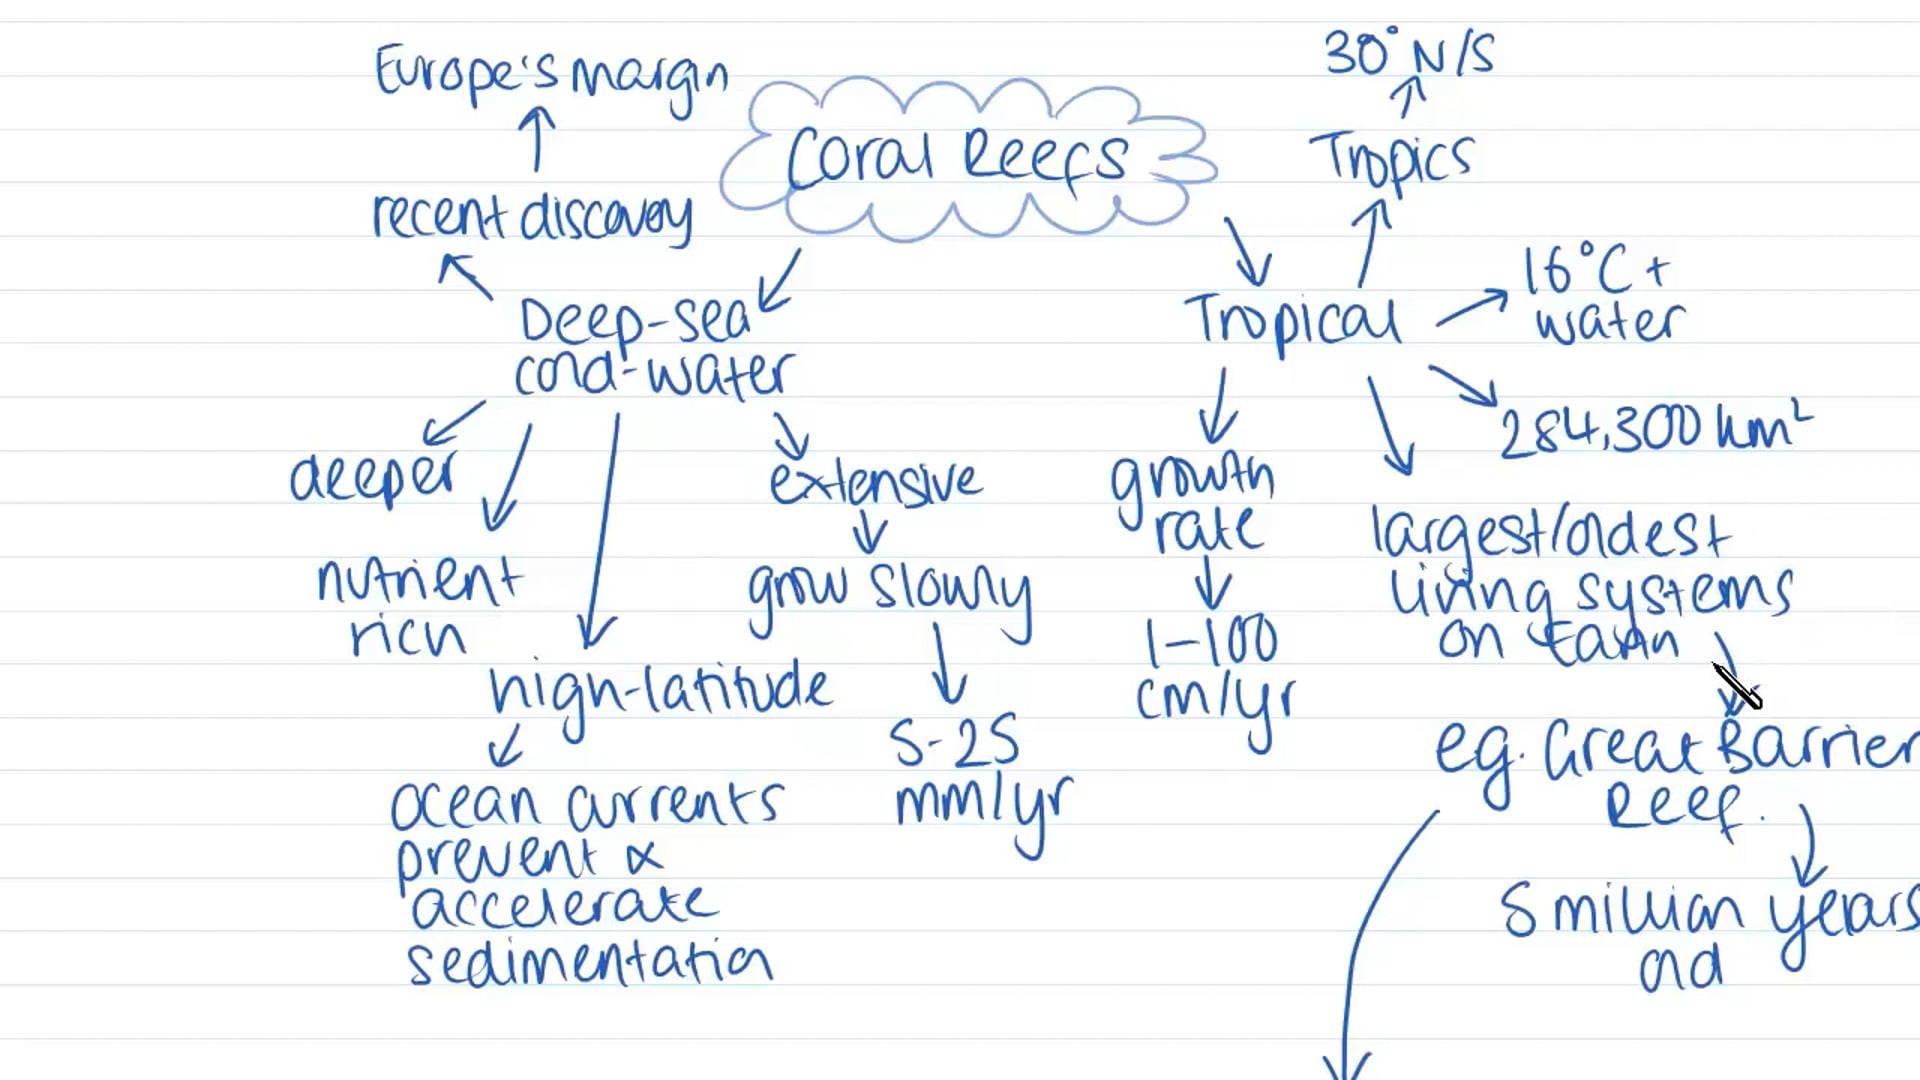 Coral Reefs
Europe's margin
recent discovery
Deep-sea
cold-water
deeper
nutrient
rich
high-latitude
ocean currents
prevent &
accelerate
sedimentation
extensive
grow slowly
5-25
mm/yr
30° N/S
Tropics
Tropical
16°C+
water
284,300 km²
growth
rate
1-100
cm/yr
largest/oldest
living systems
on Earth
eg. Great Barrier
Reef.
5 million years
old